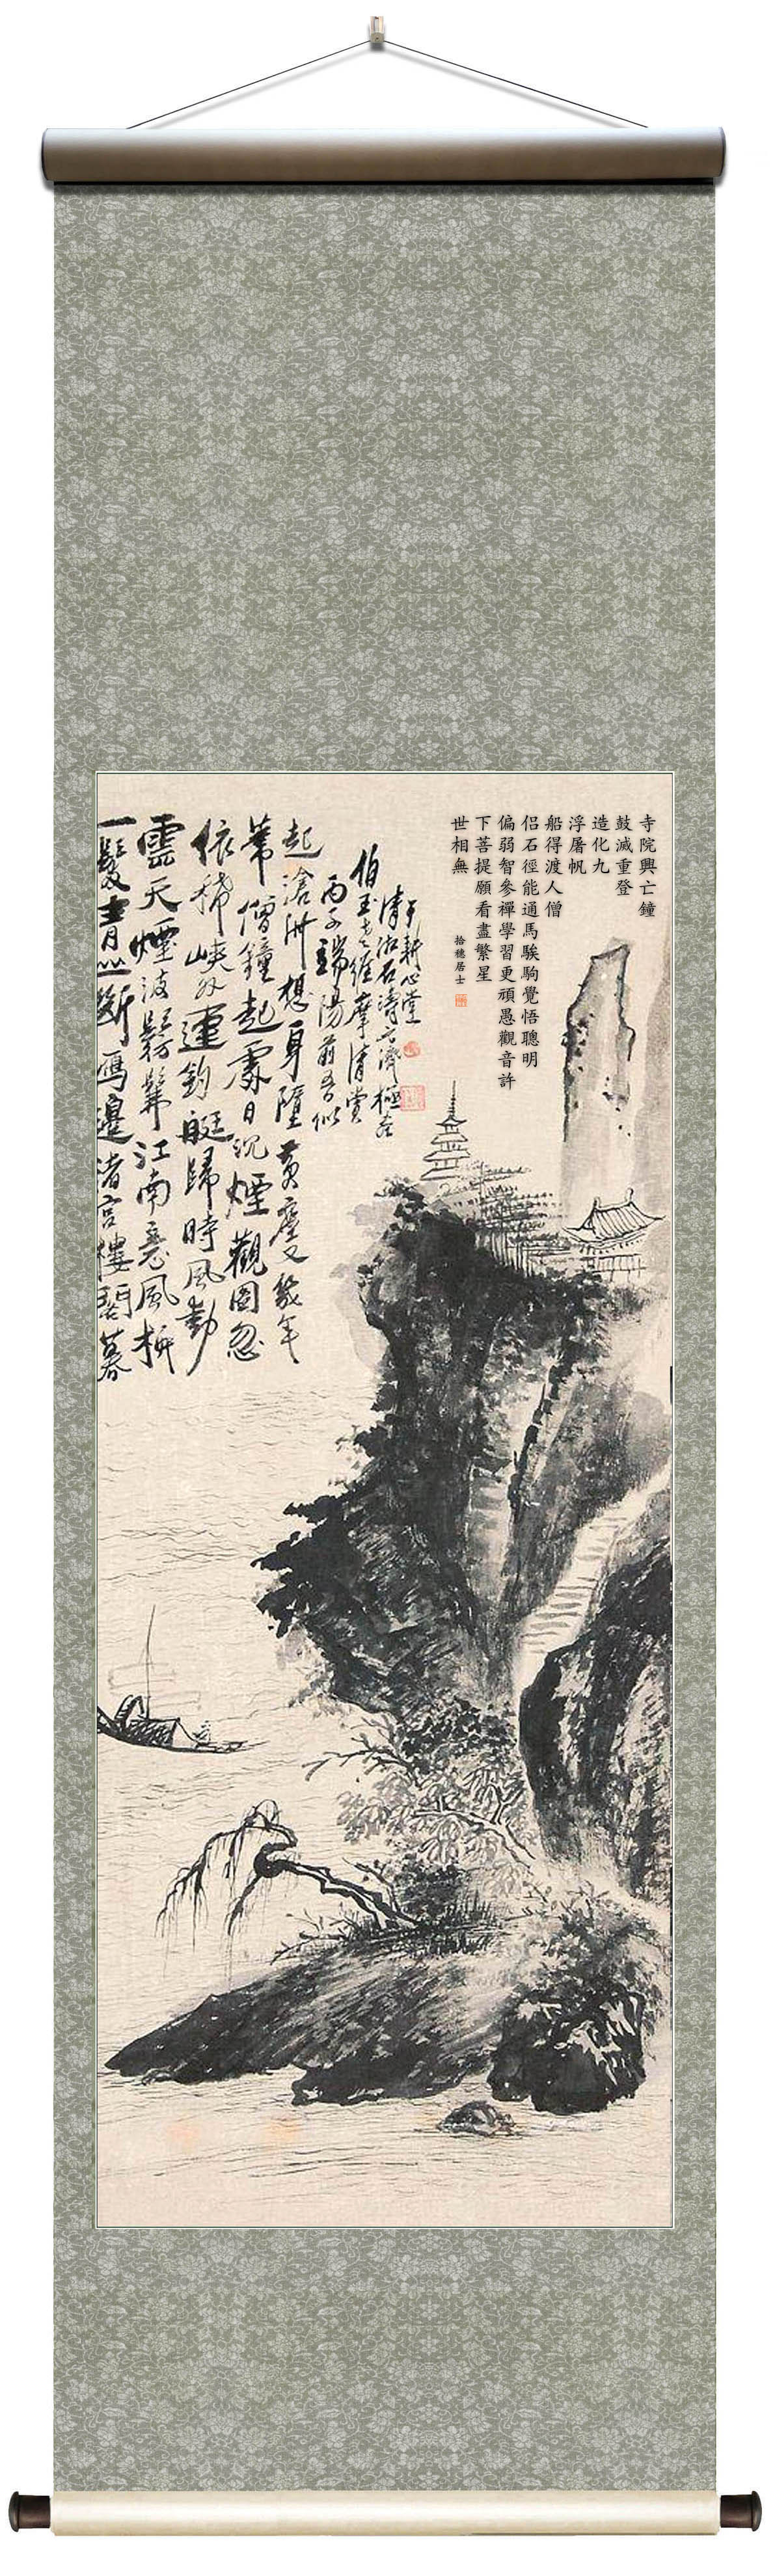 寺院興亡鐘
鼓減重登
造化九
浮屠帆
船得渡人僧
侶石徑能通馬騃駒覺悟聰明
偏弱智參禪學習更頑愚觀音許
下菩提願看盡繁星
世相無
拾穗居士
一髮青山斷鴈邊渚宮樓閣暮
雲天煙波髣髴江南意風柳
依稀峽外釣艇歸時風動
葦僧鐘起處日沉煙觀圖忽
起滄洲想身墮黃塵又幾年
丙子端陽前似
伯玉老維摩清賞
清湘石濤元濟極在
耕心堂